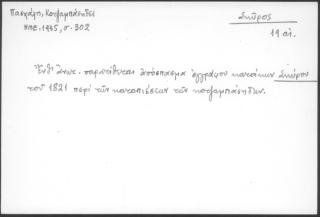 Πασχάλη, Κοτζαμπάσηδες
Σκῦρος
ΗΜΕ. 1935, σ. 302
19 αἰ.
Ἔνθ' ἄνωτ. παρατίθεται ἀπόσπασμα ἐγγράφου κατοίκων Σκύρου
τοῦ 1821 περὶ τῶν καταπιέσεων τῶν κοτζαμπάσηδων.